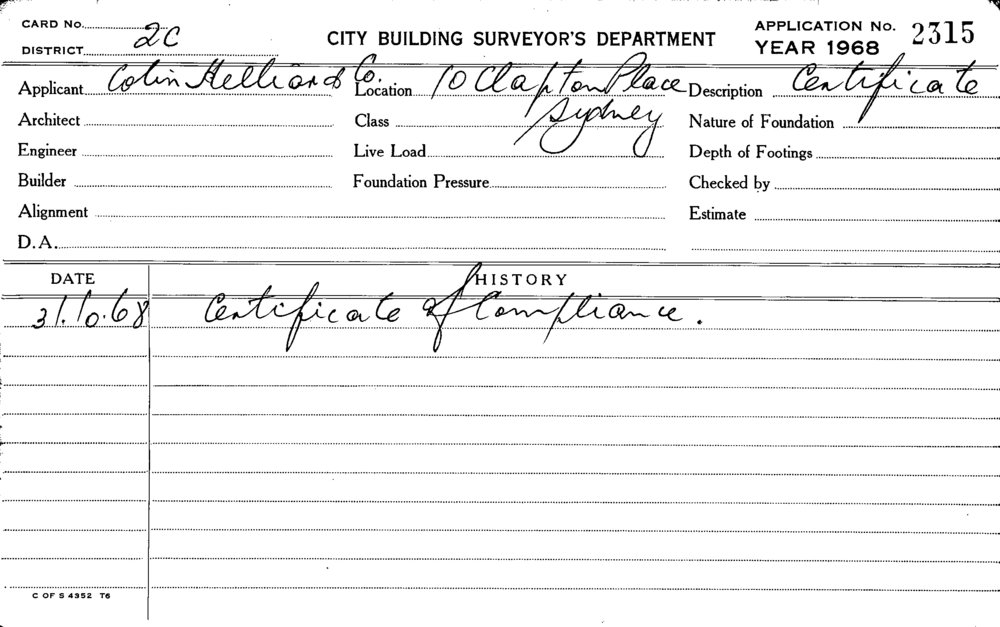 CARD No.
DISTRICT 2C
CITY BUILDING SURVEYOR'S DEPARTMENT
APPLICATION No. 2315
YEAR 1968
Applicant Colin Helliard Co. Location 10 Clapton Place Description Certificate
Architect Class Sydney Nature of Foundation
Engineer Live Load Depth of Footings
Builder Foundation Pressure Checked by
Alignment Estimate
D.A.
DATE HISTORY
31.10.68 Certificate of Compliance.
C OF S 4352 T6